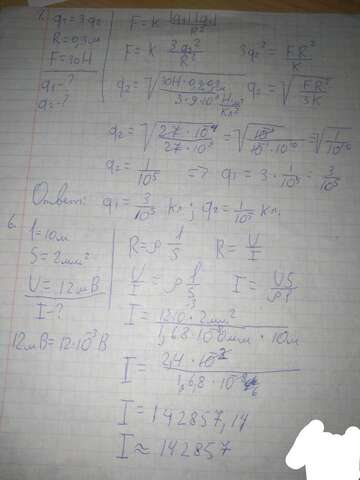 q₁ = 3·q₂
R = 0,3м
F = 30Н
q₁ - ?
q₂ - ?
F = K |q₁| |q₂| / R²
F = K 3q₂² / R²   3q₂² = FR² / K
q₂ = √   q₂ = √(FR² / 3K)
q₂ = √(27·10⁻¹ / 27·10⁹) = = √(1 / 10¹⁰)
q₂ = 1/10⁵ => q₁ = 3 · 1/10⁵ = 3/10⁵
Ответ: q₁ = 3/10⁵ Кл; q₂ = 1/10⁵ Кл.
6.
l = 10м
S = 2мм²
U = 12мВ
I - ?
12мВ = 12·10³В
R = ρ l/S   R = U/I
U/I = ρ l/S   I = US / ρl
I = 2мм² / 1,68·10⁻⁸ мм · 10м
I = / 1,68·10
I = 142857,14
I ≈ 142857